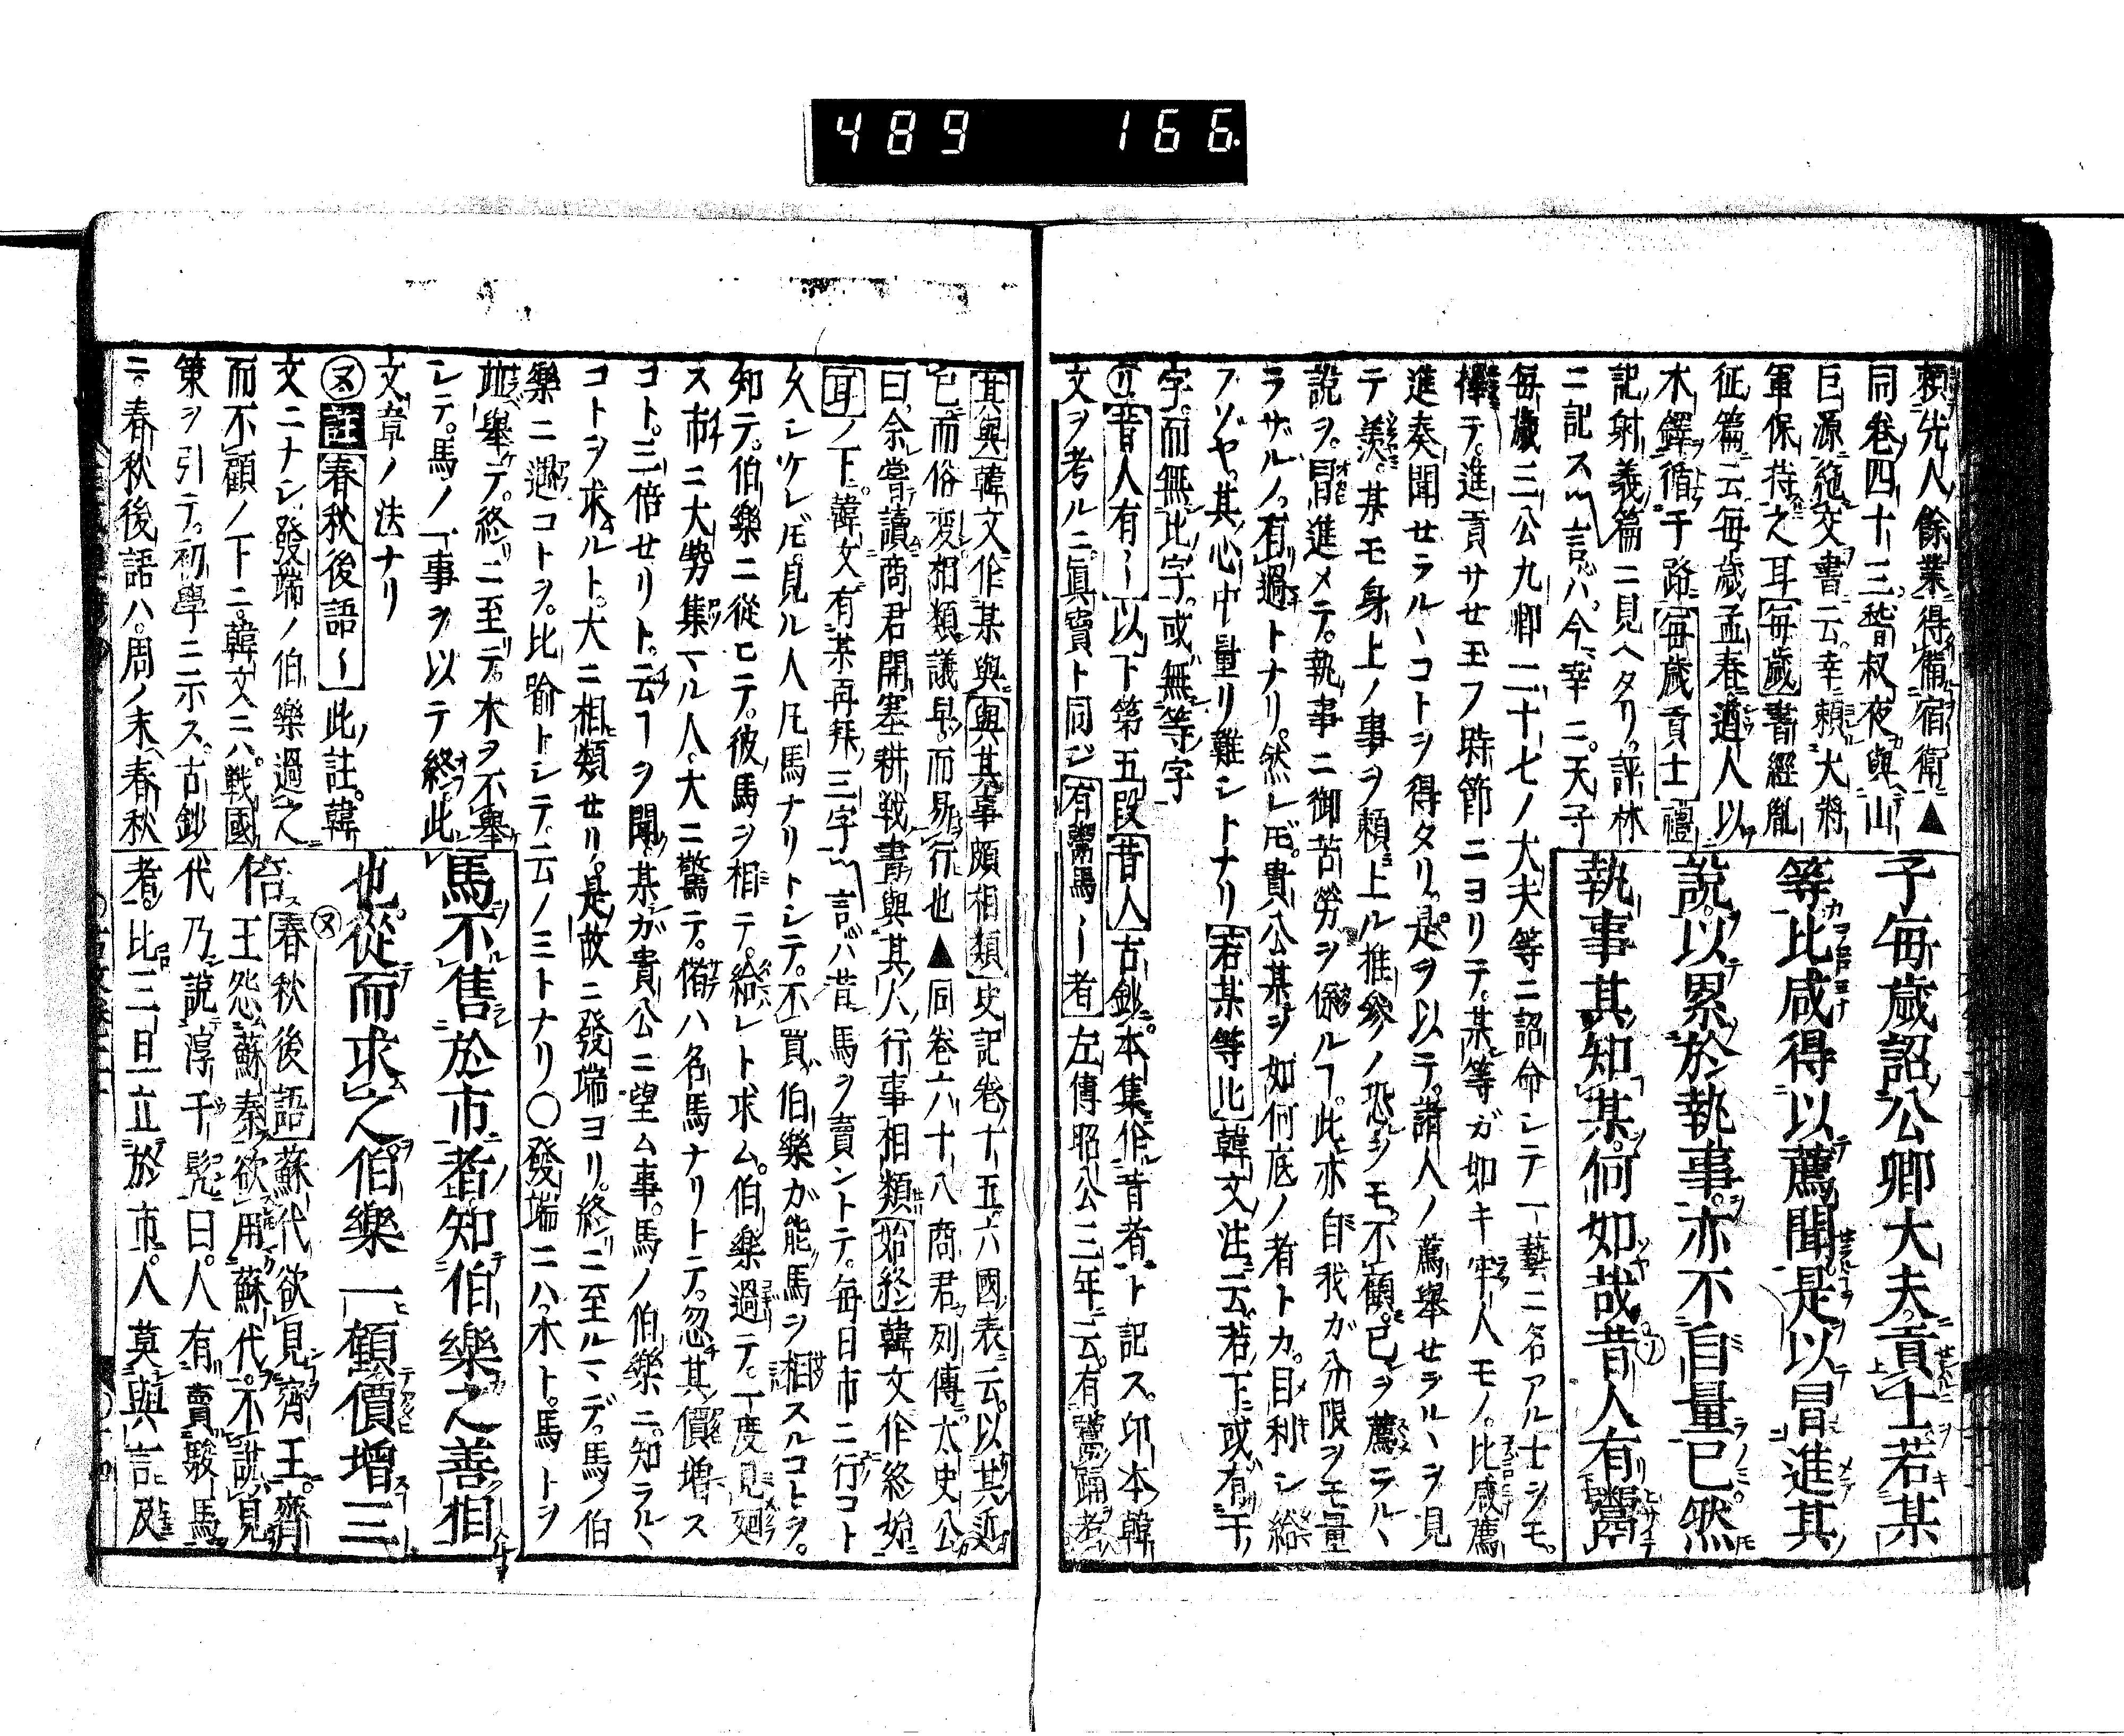 489 166
頼先人餘業得備宿衛▲
同巻四十三嵆叔夜與山
巨源絶交書云幸頼大將
軍保持之耳毎歳書經胤
征篇云毎歳孟春遒人以
木鐸循于路毎歳貢士禮
記射義篇ニ見ヘタリ評林
ニ記ス言バ今幸ニ天子
子毎歳詔公卿大夫貢士若某
等比咸得以薦聞是以冒進其
説以累於執事亦不自量已然
執事其知某何如哉昔人有鬻
毎歳三公九卿二十七ノ大夫等ニ詔命シテ一藝ニ名アル士シモ
擇テ進貢サせ玉フ時節ニヨリテ某等ガ如キ牢人モノ比咸薦
進奏聞せラルヽコトシ得タリ是ヲ以テ諸人ノ薦舉せラルヽヲ見
テ羨某モ身上ノ事ヲ頼上ル推參ノ恐シモ不顧已ヲ薦ラルヽ
説ヲ冒進メテ執事ニ御苦勞ヲ係ルフ此亦自我が分限ヲモ量
ラザルノ有過トナリ然レ𪜈貴公某ヲ如何底ノ者トカ目利シ給
フゾヤ其心中量リ難シトナリ若某等比韓文注云若下或有干
字而無比字或無等字
リ昔人有〜以下第五段昔人古鈔本集作昔者ト記ス印本韓
文ヲ考ルニ眞寳ト同ジ有鬻馬〜者左傳昭公三年云有鬻踊者
其與韓文作某與與其事頗相類史記巻十五六國表云以其近
已而俗変相類議卑而易行也▲同巻六十八商君列傳太史公
曰余嘗讀商君開塞耕戦書與其人行事相類始終韓文作終始
耳ノ下韓文有某再拜三字言バ昔馬ヲ賣ントテ毎日市ニ行コト
久シケレ𪜈見ル人凡馬ナリトシテ不買伯樂ガ能馬シ相スルコトヲ
知テ伯樂ニ從ヒテ彼馬ヲ相テ給レト求ム伯樂過テ一度見廻
ス市ニ大勢集マル人大ニ驚テ偖ハ名馬ナリトテ忽其價増ス
コト三倍せリト云フヲ聞某ガ貴公ニ望ム事馬ノ伯樂ニ知ラルヽ
コトヲ求ルト大ニ相類せリ是故ニ發端ヨリ終ニ至ルマデ馬ノ伯
樂ニ遇コトヲ比喩トシテ云ノミトナリ〇發端ニハ木ト馬トヲ
竝舉テ終ニ至テ木ヲ不舉
シテ馬ノ一事ヲ以テ終此
文章ノ法ナリ
ヌ註春秋後語〜此註韓
文ニナシ發端ノ伯樂過之
而不顧ノ下ニ韓文ニハ戦國
策ヲ引テ初學ニ示ス古鈔
ニ春秋後語ハ周ノ末春秋
馬不售於市者知伯樂之善相
也從而求之伯樂一顧價增三
倍春秋後語蘇代欲見齊王齊
王怨蘇秦欲用蘇代不説見
代乃説淳于髡曰人有賣駿馬
者比三旦立於市人莫與言及